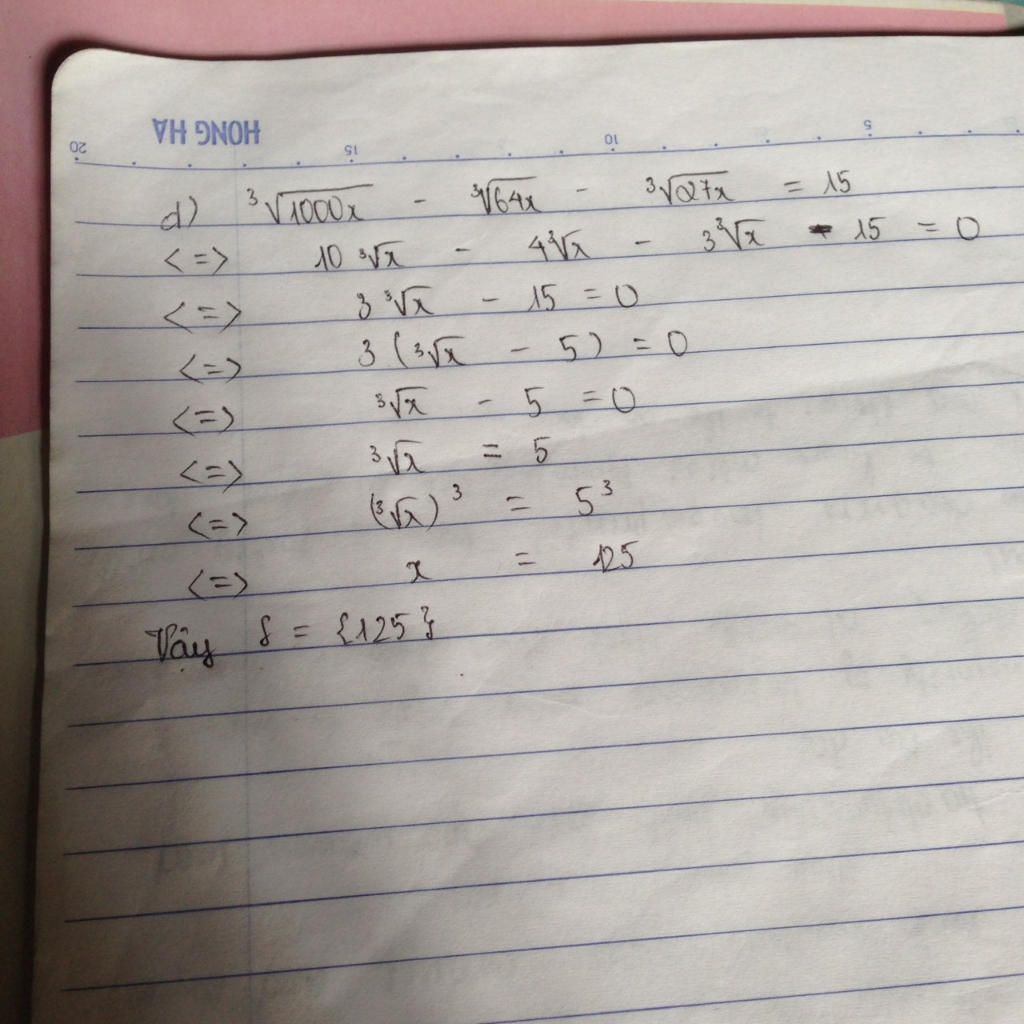 HONG HA
20 15 10 5
d) ³√1000x - ³√64x - ³√27x = 15
<=> 10 ³√x - 4³√x - 3³√x - 15 = 0
<=> 3 ³√x - 15 = 0
<=> 3 (³√x - 5) = 0
<=> ³√x - 5 = 0
<=> ³√x = 5
<=> (³√x)³ = 5³
<=> x = 125
Vậy S = {125}